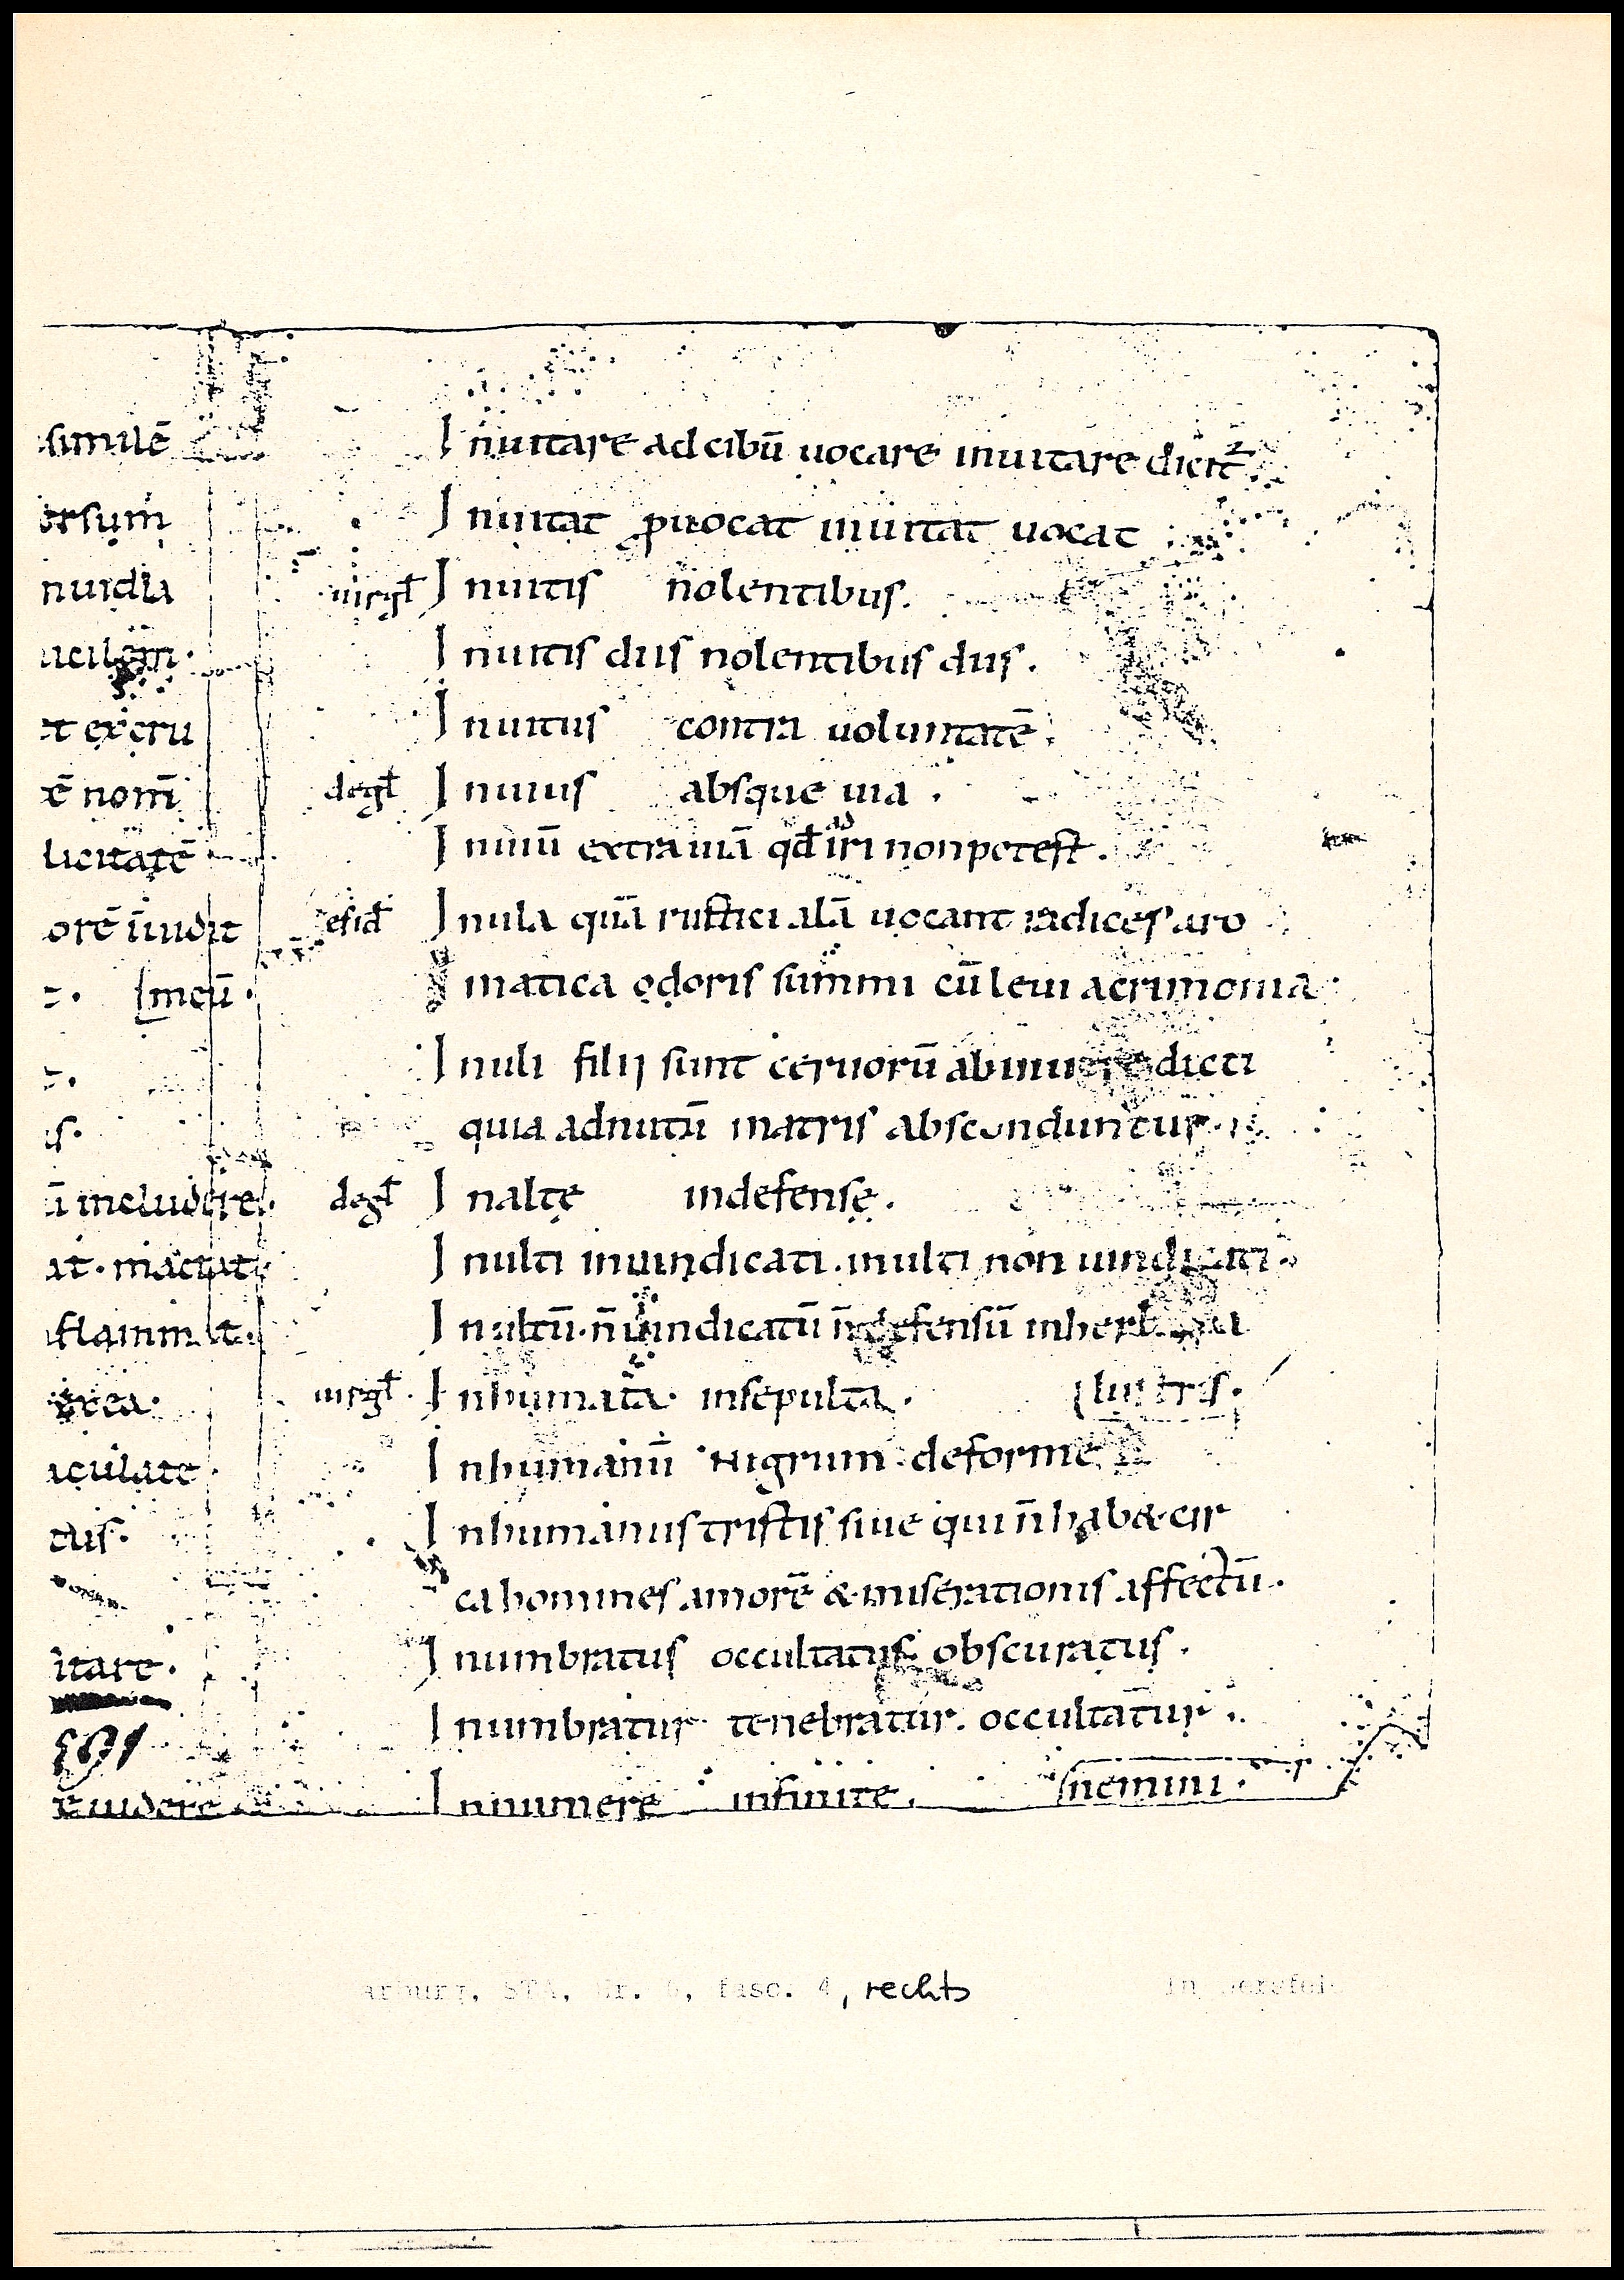 similē
orsum
nuidia
ucilem.
t excru
ē nom̄
licitatē
orē inuidit
mcū.
s.
ī includere.
at. mactat
flammat.
erea.
aculate
tus.
itare.
ē uidere
Inuitare ad cibū uocare inuitare dicit᷑
Inuitat ꝓuocat inuitat uocat
uirgł Inuitis nolentibus.
Inuitis diis nolentibus diis.
Inuitus contra uoluntatē.
degł Inuius absque uia.
Inuiū extra uiā qđ adiri non potest.
esid̄ Inula quā rustici alā uocant radices aro
matica odoris summi cū leui acrimonia
Inuli filij sunt ceruorū ab inuere dicti
quia ad nutū matris absconduntur.
degł Inultę indefensę.
Inulti inuindicati. inulti non uindicati.
Inultū. n̄ uindicatū n̄ defensū
uirgł. Inhumata. insepulta. lustris.
Inhumanū Nigrum. deforme
Inhumanus tristis siue qui n̄ habet cir
ca homines amorē & miserationis affectū.
Inumbratus occultatus obscuratus.
Inumbratur. tenebratur. occultatur.
Innumere infinite. nemini.
arburg, STA, Nr. 6, fasc. 4, rechts